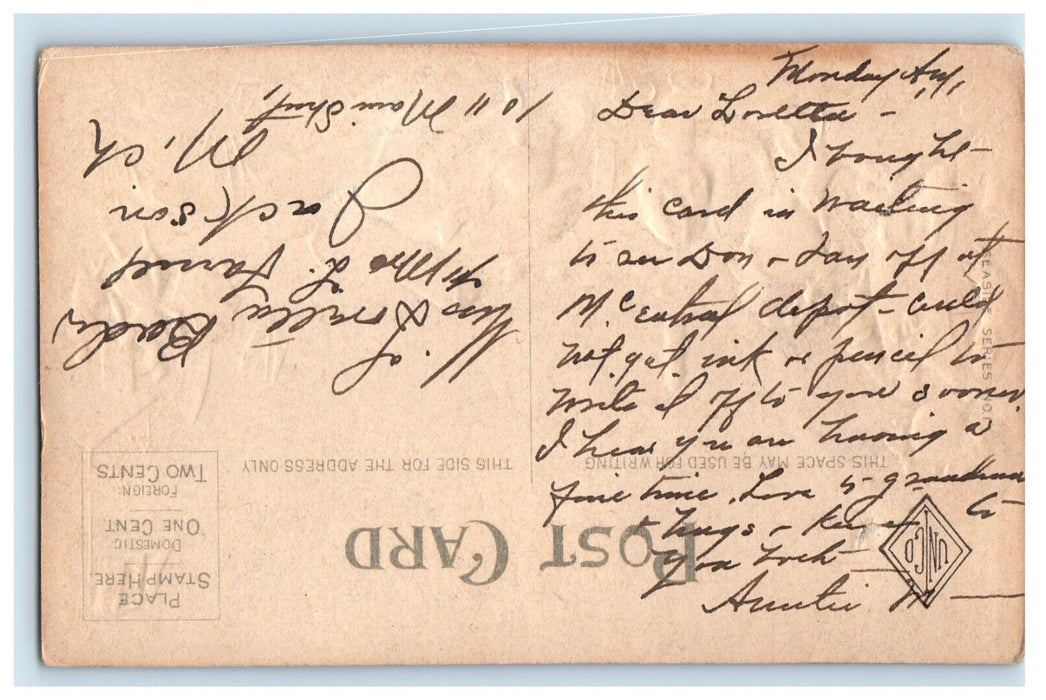 Monday Aug,
Dear Loretta —
I bought
this card in waiting
to see Don & Fay off at
M. Central depot — could
not get ink or pencil to
write it off to you sooner.
I hear you are having a
fine time. Love to grandma
& hugs & kisses to
you both —
Auntie M —
Miss Loretta Beach,
of
% Mrs L. Farnel
Jackson
Mich
1011 Main Street,
POST CARD
THIS SPACE MAY BE USED FOR WRITING
THIS SIDE FOR THE ADDRESS ONLY
PLACE
STAMP HERE
DOMESTIC
ONE CENT.
FOREIGN
TWO CENTS
UNICO
SERIES NO.